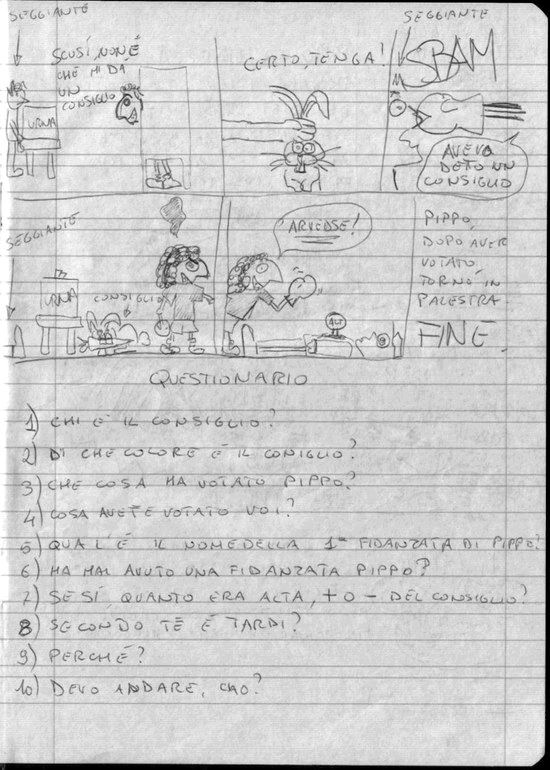 SEGGIANTE
SCUSÍ, NON È
CHE MI DÀ
UN
CONSIGLIO
URNA
CERTO, TENGA!
SEGGIANTE
SBAM
AVEVO
DETO UN
CONSIGLIO
SEGGIANTE
URNA
CONSIGLIO
ARVEDSE!
PIPPO,
DOPO AVER
VOTATO,
TORNÒ IN
PALESTRA.
FINE.
QUESTIONARIO
1) CHI È IL CONSIGLIO?
2) DI CHE COLORE È IL CONIGLIO?
3) CHE COSA HA VOTATO PIPPO?
4) COSA AVETE VOTATO VOI?
5) QUAL'È IL NOME DELLA 1ª FIDANZATA DI PIPPO?
6) HA MAI AVUTO UNA FIDANZATA PIPPO?
7) SE SÍ, QUANTO ERA ALTA, + O - DEL CONSIGLIO?
8) SECONDO TÈ È TARDI?
9) PERCHÉ?
10) DEVO ANDARE, CAO?